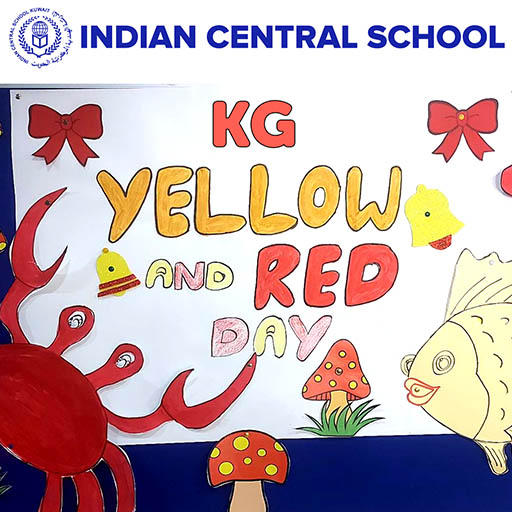 INDIAN CENTRAL SCHOOL KUWAIT
INDIAN CENTRAL SCHOOL
KG
YELLOW
AND RED
DAY